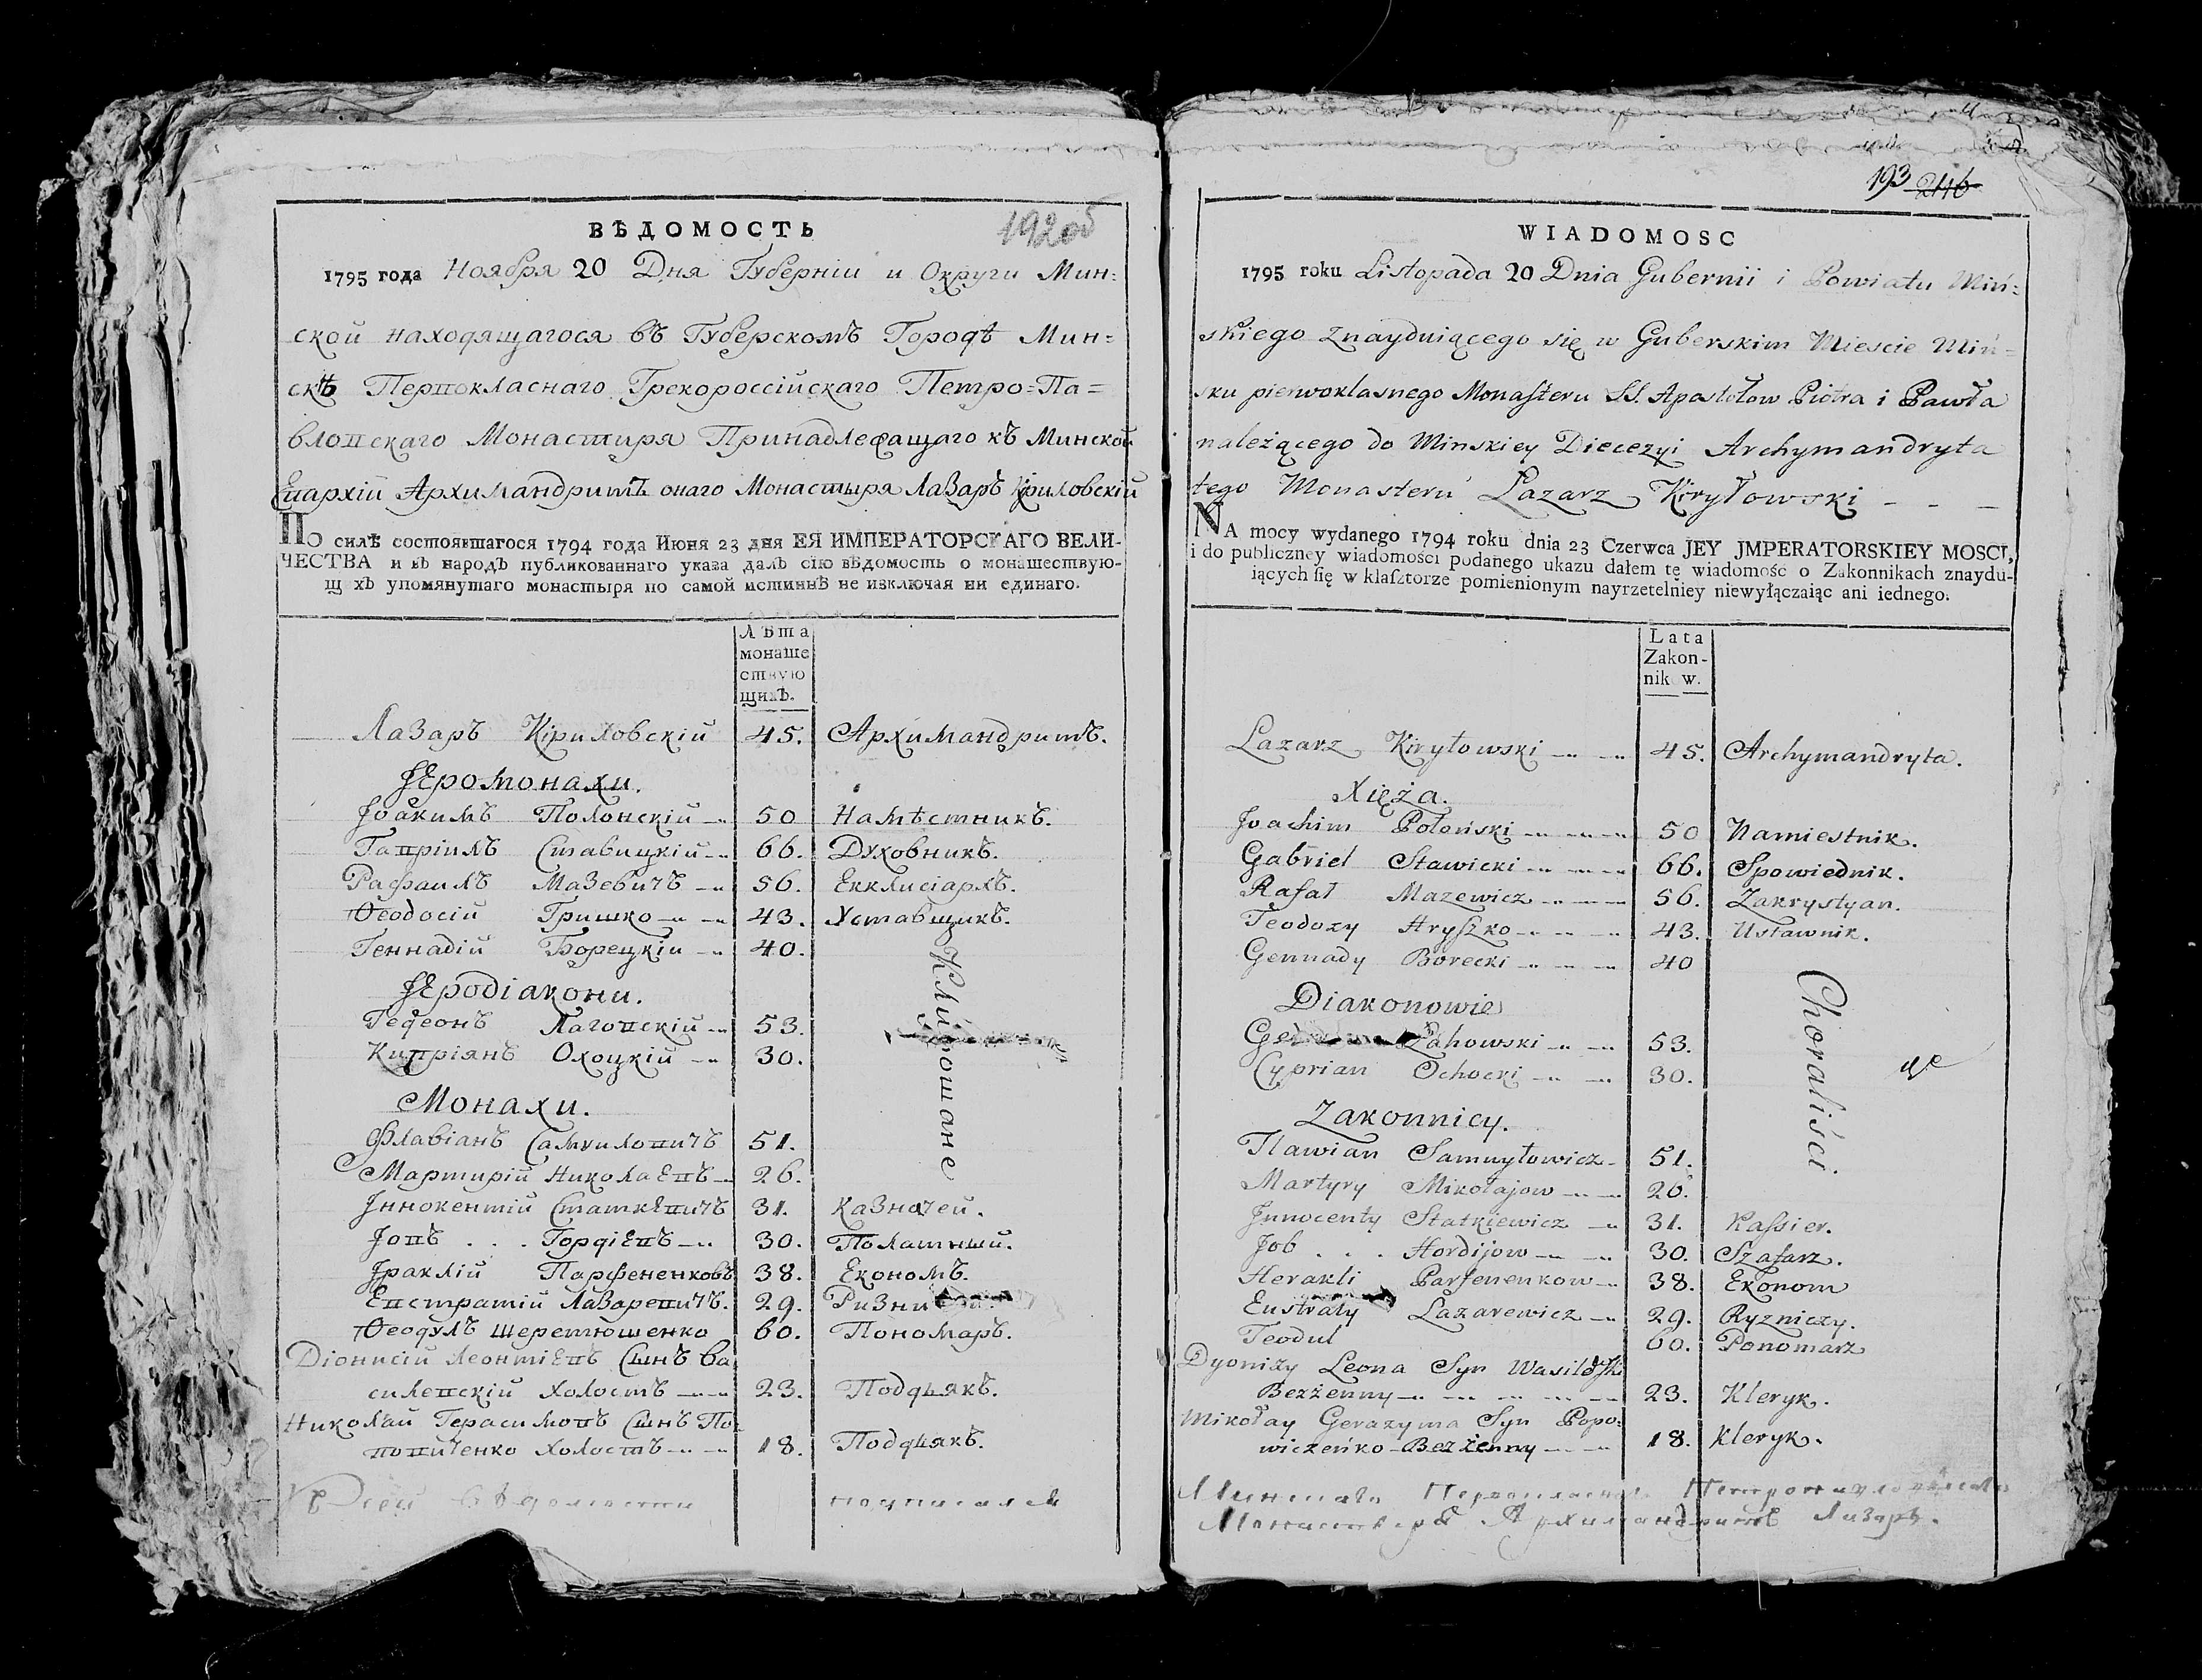 192об
ВѢДОМОСТЬ
1795 года Ноября 20 Дня Губерніи и Округи Мин=
ской находящагося въ Губерскомъ Городѣ Мин=
скѣ Первокласнаго Грекороссійскаго Петро=Па=
вловскаго Монастиря Принадлежащаго къ Минской
Епархіи Архимандритъ онаго Монастыря Лазаръ Кіриловскій
ПО силѣ состоявшагося 1794 года Июня 23 дня ЕЯ ИМПЕРАТОРСКАГО ВЕЛИ-
ЧЕСТВА и въ народъ публикованнаго указа далъ сію вѣдомость о монашествую-
щ хъ упомянутаго монастыря по самой истиннѣ не изключая ни единаго.
Лѣта
монаше
ствую
щихъ.
Лазаръ Кіриловскій 45. Архимандритъ.
Іеромонахи.
Іоакимъ Полонскій 50 Намѣстникъ.
Гавріилъ Ставицкій 66. Духовникъ.
Рафаилъ Мазевичъ 56. Екклисіархъ.
Ѳеодосій Гришко 43. Уставщикъ.
Геннадій Борецкій 40.
Іеродіакони.
Гедеонъ Лаговскій 53.
Кипріянъ Охоцкій 30.
Клирошане
Монахи.
Флавіанъ Самуиловичъ 51.
Мартирій Николаевъ 26.
Іннокентій Статкевичъ 31. Казначей.
Іовъ . . . Гордіевъ 30. Полатный.
Іраклій Парфененковъ 38. Економъ.
Евстратій Лазаревичъ. 29.
Ѳеодулъ Шеретюшенко 60. Пономаръ.
Діонисій Леонтіевъ Сынъ Ва
силевскій холостъ 23. Подьякъ.
Николай Герасимовъ Сынъ По=
повиченко холостъ 18. Подьякъ.
К сей вѣдомости подписался
193 246
WIADOMOSC
1795 roku Listopada 20 Dnia Gubernii i Powiatu Miń=
skiego Znayduiącego się w Guberskim Miescie Miń=
sku pierwoklasnego Monasteru SS. Apostołow Piotra i Pawła
należącego do Minskiey Diecezyi Archymandryta
tego Monasteru Lazarz Kiryłowski - - -
NA mocy wydanego 1794 roku dnia 23 Czerwca JEY JMPERATORSKIEY MOSCI,
i do publiczney wiadomości podanego ukazu dałem tę wiadomość o Zakonnikach znaydu-
iących się w klasztorze pomienionym nayrzetelniey niewyłączaiąc ani iednego.
Lata
Zakon-
nik w.
Lazarz Kiryłowski 45. Archymandryta.
Xięża.
Joachim Połoński 50 Namiestnik.
Gabriel Stawicki 66. Spowiednik.
Rafał Mazewicz 56. Zakrystyan.
Teodozy Hryszko 43. Ustawnik.
Gennady Borecki 40
Diakonowie
Łahowski 53.
Cyprian Ochocki 30.
Choraliści
Zakonnicy.
Flawian Samuyłowicz 51.
Martyry Mikołajow 26.
Jnnocenty Statkiewicz 31. Kassier.
Job . . . Hordijow 30. Szafarz.
Herakli Parfenenkow 38. Ekonom
Eustraty Lazarewicz 29. Ryzniczy.
Teodul 60. Ponomarz
Dyonizy Leona Syn Wasilewski
Bezżenny 23. Kleryk.
Mikołay Gerazyma Syn Popo=
wiczeńko Bezżenny 18. Kleryk.
Минскаго Первокласнаго Петропавловскаго
Монастыря Архимандритъ Лазаръ.